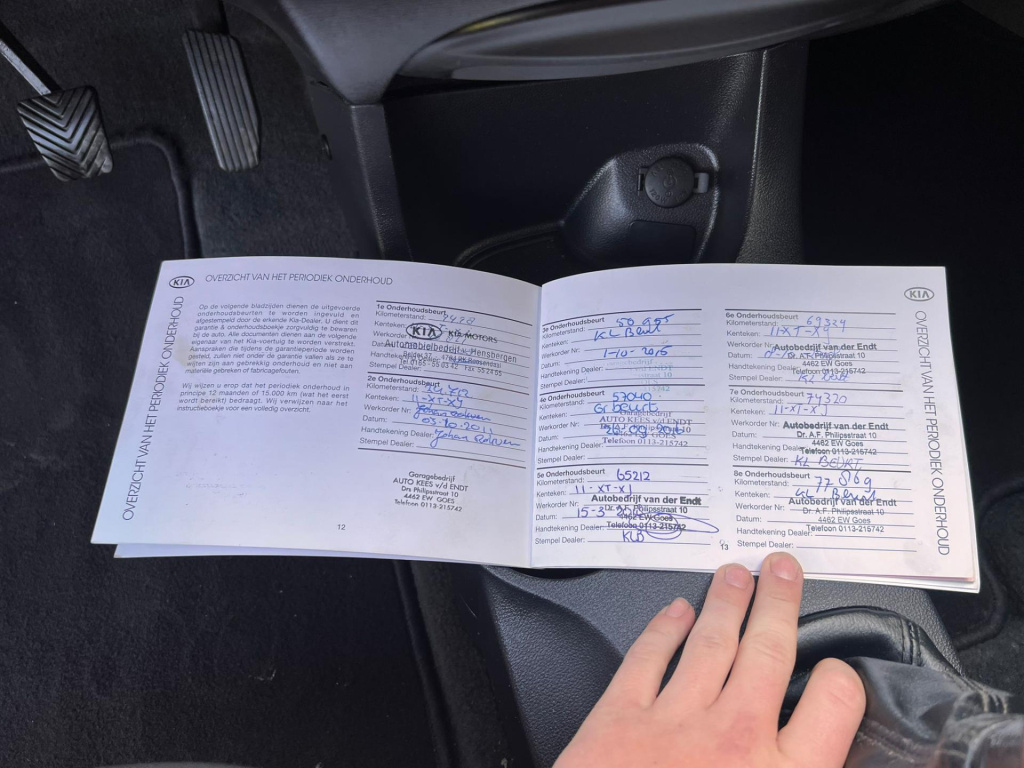 KIA
OVERZICHT VAN HET PERIODIEK ONDERHOUD
OVERZICHT VAN HET PERIODIEK ONDERHOUD
Op de volgende bladzijden dienen de uitgevoerde
onderhoudsbeurten te worden ingevuld en
afgestempeld door de erkende Kia-Dealer. U dient dit
garantie & onderhoudsboekje zorgvuldig te bewaren
bij de auto. Alle documenten dienen aan de volgende
eigenaar van het Kia-voertuig te worden verstrekt.
Aanspraken die tijdens de garantieperiode worden
gesteld, zullen niet onder de garantie vallen als ze te
wijten zijn aan gebrekkig onderhoud en niet aan
materiële gebreken of fabricagefouten.
Wij wijzen u erop dat het periodiek onderhoud in
principe 12 maanden of 15.000 km (wat het eerst
wordt bereikt) bedraagt. Wij verwijzen naar het
instructieboekje voor een volledig overzicht.
1e Onderhoudsbeurt
Kilometerstand:
Kenteken:
KIA KIA MOTORS
Automobielbedrijf v. Hensbergen
Handtekening
Stempel Dealer:
2e Onderhoudsbeurt
Kilometerstand:
Kenteken: 11-XT-XJ
Werkorder Nr:
Datum:
Handtekening Dealer:
Stempel Dealer:
Garagebedrijf
AUTO KEES v/d ENDT
Drs Philipsstraat 10
4462 EW GOES
Telefoon 0113-215742
12
3e Onderhoudsbeurt
Kilometerstand:
Kenteken: KL Beurt
Werkorder Nr:
Datum: 1-10-2015
Handtekening Dealer:
Stempel Dealer:
4e Onderhoudsbeurt
Kilometerstand: 57040
Kenteken: Gr beurt
Garagebedrijf
Werkorder Nr:
AUTO KEES v/d ENDT
Datum:
4462 EW GOES
Handtekening Dealer:
Telefoon 0113-215742
Stempel Dealer:
5e Onderhoudsbeurt
Kilometerstand: 65212
Kenteken: 11-XT-XJ
Autobedrijf van der Endt
Werkorder Nr:
Dr. A.F. Philipsstraat 10
Datum: 15-3
4462 EW Goes
Handtekening Dealer:
Telefoon 0113-215742
Stempel Dealer: KLB
13
KIA
OVERZICHT VAN HET PERIODIEK ONDERHOUD
6e Onderhoudsbeurt
Kilometerstand: 69324
Kenteken: 11-XT-XJ
Autobedrijf van der Endt
Werkorder Nr:
Dr. A.F. Philipsstraat 10
Datum:
4462 EW Goes
Handtekening
Telefoon 0113-215742
Stempel Dealer:
7e Onderhoudsbeurt
Kilometerstand: 74320
Kenteken: 11-XT-XJ
Werkorder Nr:
Autobedrijf van der Endt
Datum:
Dr. A.F. Philipsstraat 10
4462 EW Goes
Handtekening Dealer:
Telefoon 0113-215742
Stempel Dealer: KL BEURT
8e Onderhoudsbeurt
Kilometerstand: 77
Kenteken: KL Beurt
Autobedrijf van der Endt
Werkorder Nr:
Dr. A.F. Philipsstraat 10
Datum:
4462 EW Goes
Handtekening Dealer:
Telefoon 0113-215742
Stempel Dealer: